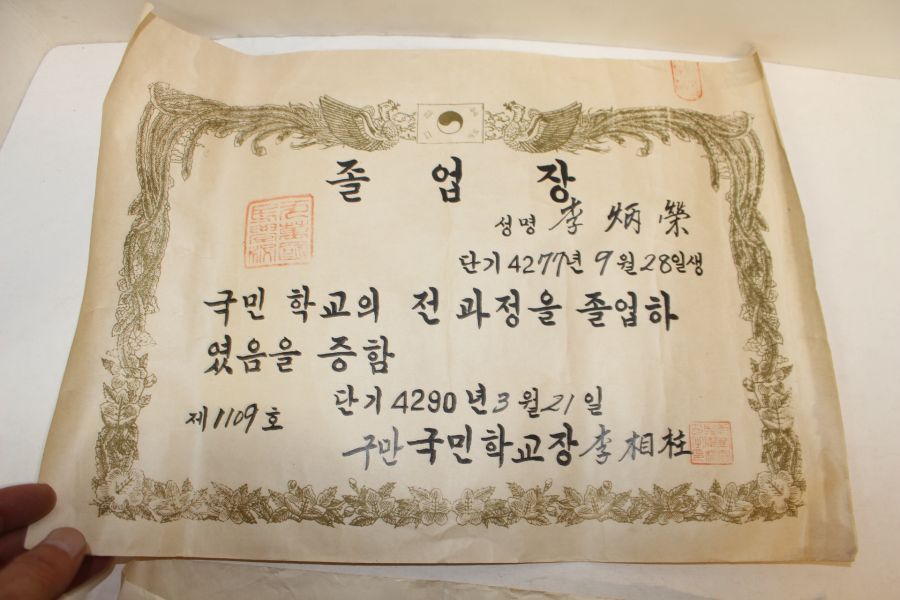 졸업장
성명 李炳榮
단기 4277년 9월 28일생
국민 학교의 전 과정을 졸업하
였음을 증함
단기 4290년 3월 21일
제 1109 호
구만국민학교장 李相柱